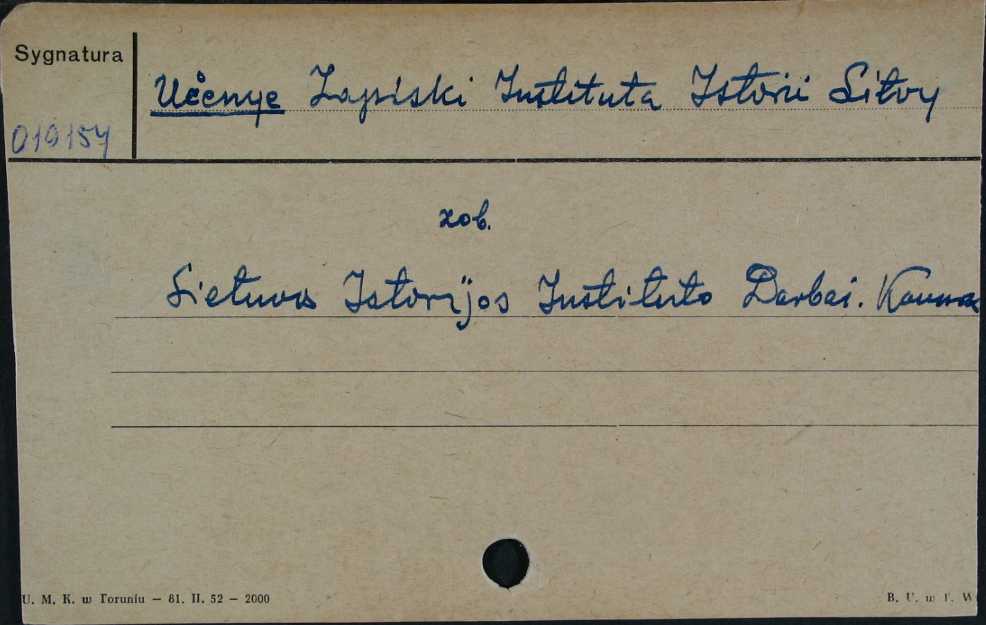 Sygnatura
Učenye Zapiski Instituta Istorii Litvy
019154
zob.
Lietuvos Istorijos Instituto Darbai. Kaunas
U. M. K. w Toruniu — 81. II. 52 — 2000
B. U. w T.